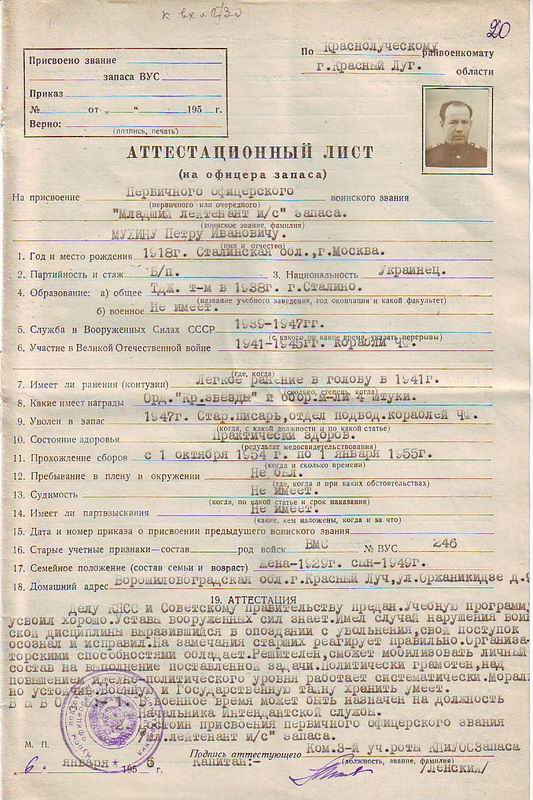 к вх
20
По Краснолуческому райвоенкомату
г.Красный Луг. области
Присвоено звание
запаса ВУС
Приказ
№ от „ “ 195 г.
Верно:
(подпись, печать)
АТТЕСТАЦИОННЫЙ ЛИСТ
(на офицера запаса)
На присвоение Первичного офицерского воинского звания
(первичного или очередного)
"Младший лейтенант и/с" запаса.
(воинское звание, фамилия)
МУХИНУ Петру Ивановичу.
(имя и отчество)
1. Год и место рождения 1918г. Сталинская обл.,г.Москва.
2. Партийность и стаж Б/п. 3. Национальность Украинец.
4. Образование: а) общее т-м в 1938г. г.Сталино.
(название учебного заведения, год окончания и какой факультет)
б) военное Не имеет.
5. Служба в Вооруженных Силах СССР 1939-1947гг.
(с какого по какое время, указать перерывы)
6. Участие в Великой Отечественной войне 1941-1945гг. корабли ЧФ.
(где, когда)
7. Имеет ли ранения (контузии) Легкое ранение в голову в 1941г.
(сколько, степень, когда)
8. Какие имеет награды Орд."Кр.звезды" и обор.м-ли 4 штуки.
9. Уволен в запас 1947г. Стар.писарь,отдел подвод.кораблей ЧФ.
(когда, с какой должности и по какой статье)
10. Состояние здоровья Практически здоров.
(результат медосвидетельствования)
11. Прохождение сборов с 1 октября 1954 г. по 1 января 1955г.
(когда и сколько времени)
12. Пребывание в плену и окружении Не был.
(где, когда и при каких обстоятельствах)
13. Судимость Не имеет.
(когда, по какой статье и срок наказания)
14. Имеет ли партвзыскания Не имеет.
(какие, кем наложены, когда и за что)
15. Дата и номер приказа о присвоении предыдущего воинского звания
16. Старые учетные признаки—состав род войск ВМС № ВУС 246
17. Семейное положение (состав семьи и возраст) жена-1929г. сын-1949г.
18. Домашний адрес Ворошиловоградская обл.г.Красный Луч,ул.Оржаникидзе д.
19. АТТЕСТАЦИЯ
делу КПСС и Советскому правительству предан.Учебную программу
усвоил хорошо.Уставы вооруженных сил знает.Имел случай нарушения воин
ской дисциплины выразившийся в опоздании с увольнения,свой поступок
осознал и исправил.На замечания старших реагирует правильно.Организа-
торскими способностями обладает.Решителен,сможет мобилизовать личный
состав на выполнение поставленной задачи.Политически грамотен,над
повышением идейно-политического уровня работает систематически.Мораль
но устойчив.Военную и Государственную тайну хранить умеет.
В военное время может быть назначен на должность
Начальника Интенданской службы.
присвоения первичного офицерского звания
лейтенант и/с" запаса.
М. П. Подпись аттестующего Ком.3-й уч.роты КПиУОСЗапаса
(должность, звание, фамилия)
6. января 1955 г. Капитан:- /Ленский/